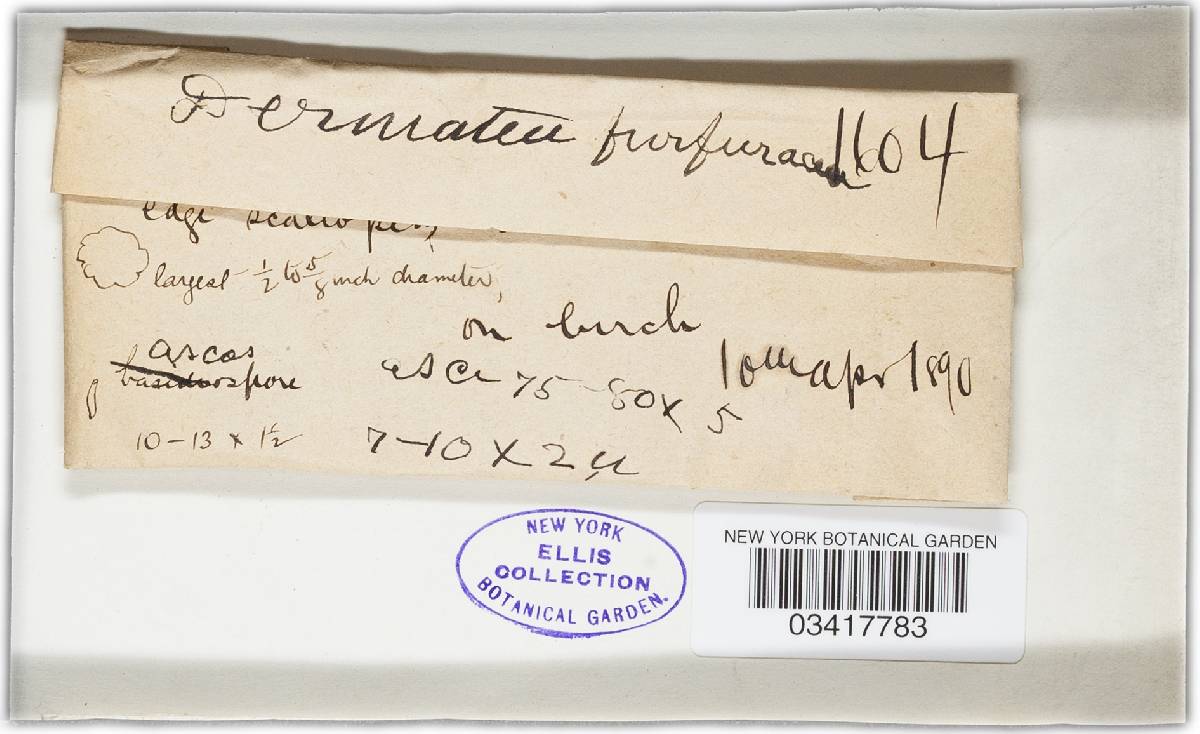 Dermatea furfuracea 1604
edge scallopes,
largest 1/2 to 5/8 inch diameter,
on birch
ascos
basidiospore
asci 75-80 x 5
10th Apr 1890
10-13 x 1 1/2
7-10 X 2 µ
NEW YORK
ELLIS
COLLECTION
BOTANICAL GARDEN.
NEW YORK BOTANICAL GARDEN
03417783